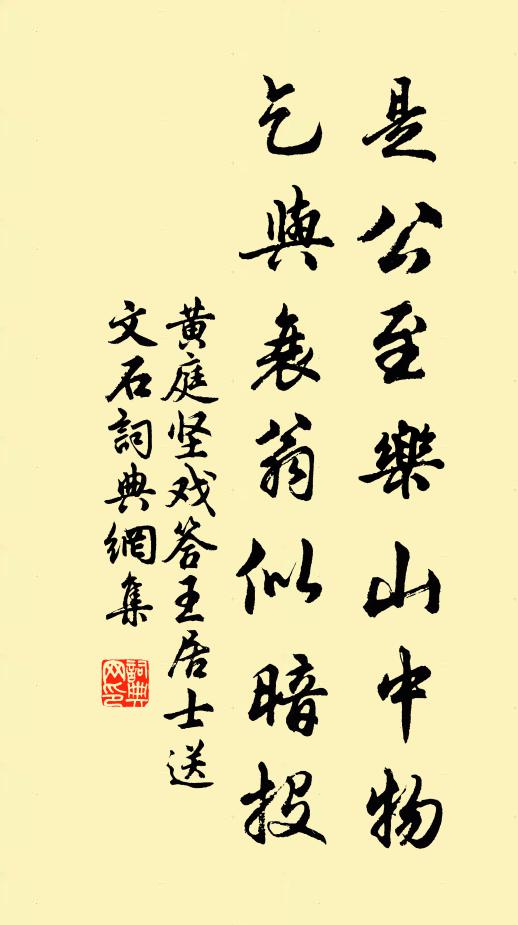 是公至樂山中物
乞與衰翁似暗投
黄庭坚戏答王居士送
文石詞典網集
詞典
网印